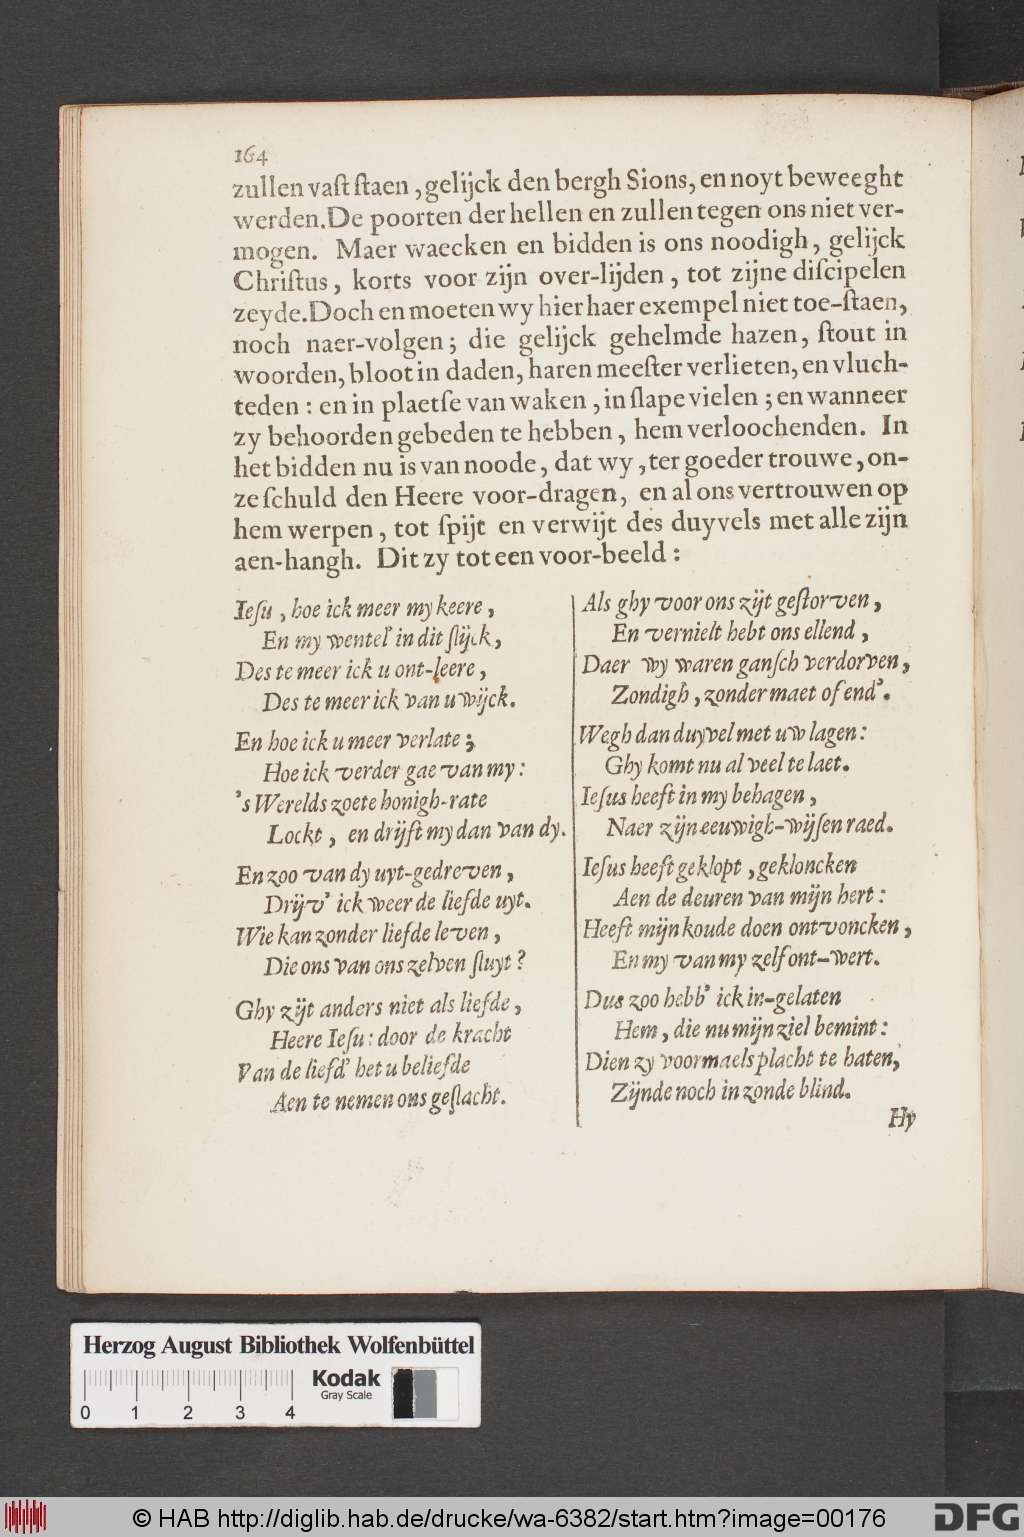 164
zullen vaſt ſtaen, gelijck den bergh Sions, en noyt beweeght
werden. De poorten der hellen en zullen tegen ons niet ver-
mogen. Maer waecken en bidden is ons noodigh, gelijck
Chriſtus, korts voor zijn over-lijden, tot zijne diſcipelen
zeyde. Doch en moeten wy hier haer exempel niet toe-ſtaen,
noch naer-volgen; die gelijck gehelmde hazen, ſtout in
woorden, bloot in daden, haren meeſter verlieten, en vluch-
teden: en in plaetſe van waken, in ſlape vielen; en wanneer
zy behoorden gebeden te hebben, hem verloochenden. In
het bidden nu is van noode, dat wy, ter goeder trouwe, on-
ze ſchuld den Heere voor-dragen, en al ons vertrouwen op
hem werpen, tot ſpijt en verwijt des duyvels met alle zijn
aen-hangh. Dit zy tot een voor-beeld:
Ieſu, hoe ick meer my keere,
En my wentel' in dit ſlijck,
Des te meer ick u ont-leere,
Des te meer ick van u wijck.
En hoe ick u meer verlate;
Hoe ick verder gae van my:
's Werelds zoete honigh-rate
Lockt, en drijft my dan van dy.
En zoo van dy uyt-gedreven,
Drijv' ick weer de liefde uyt.
Wie kan zonder liefde leven,
Die ons van ons zelven ſluyt?
Ghy zijt anders niet als liefde,
Heere Ieſu: door de kracht
Van de liefd' het u beliefde
Aen te nemen ons geſlacht.
Als ghy voor ons zijt geſtorven,
En vernielt hebt ons ellend,
Daer wy waren ganſch verdorven,
Zondigh, zonder maet of end'.
Wegh dan duyvel met uw lagen:
Ghy komt nu al veel te laet.
Ieſus heeft in my behagen,
Naer zijn eeuwigh-wijſen raed.
Ieſus heeft geklopt, gekloncken
Aen de deuren van mijn hert:
Heeft mijn koude doen ontvoncken,
En my van my zelf ont-wert.
Dus zoo hebb' ick in-gelaten
Hem, die nu mijn ziel bemint:
Dien zy voormaels placht te haten,
Zijnde noch in zonde blind.
Hy
Herzog August Bibliothek Wolfenbüttel
Kodak
Gray Scale
0 1 2 3 4
© HAB http://diglib.hab.de/drucke/wa-6382/start.htm?image=00176
DFG